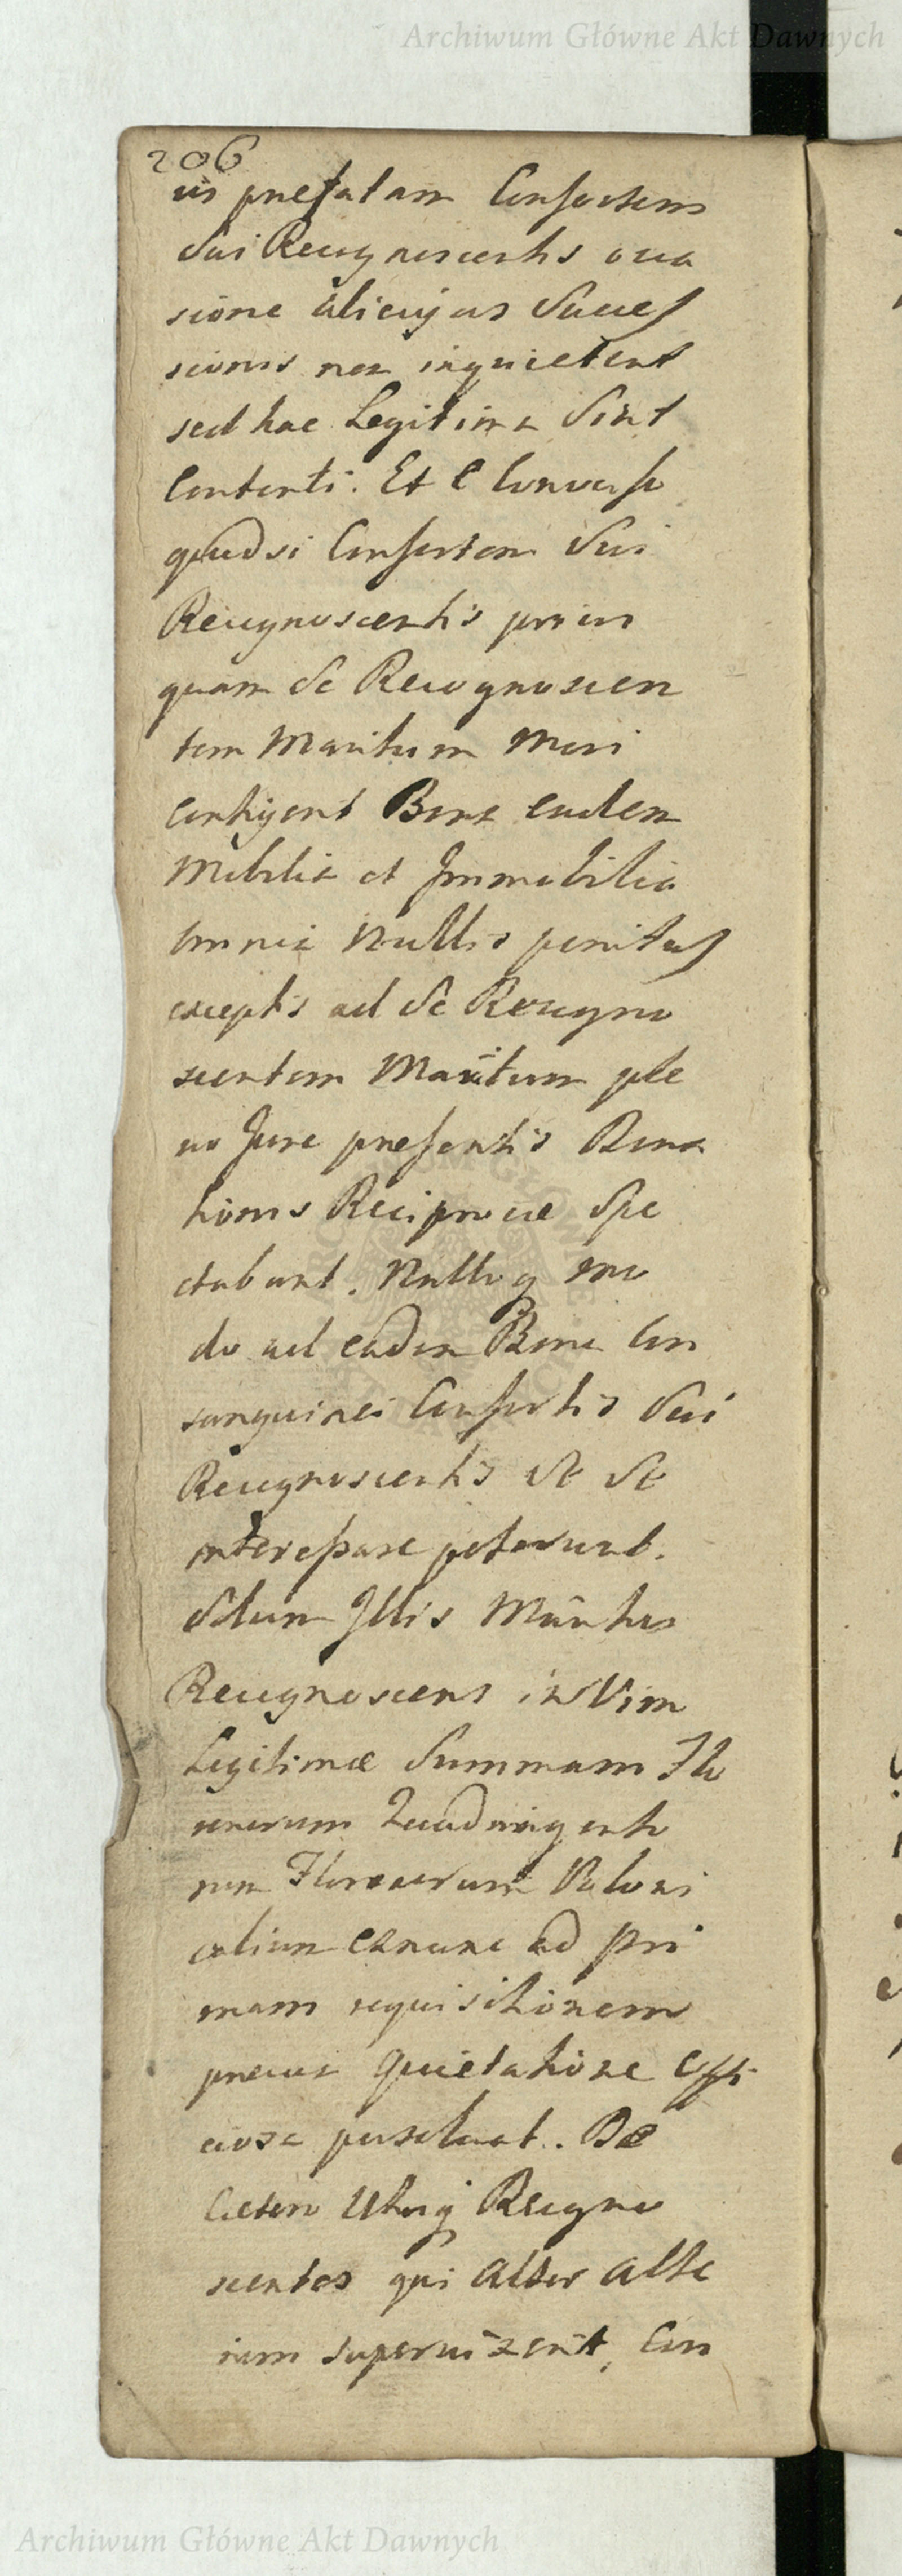 Archiwum Główne Akt Dawnych
206
us prefatam Consortem
sui Recognoscentis occa
sione alicujus Succes
sionis non inquietent
sed hac Legitima Sint
Contenti. Et e Converso
quod si Consortem Sui
Recognoscentis prius
quam Se Recognoscen
tem Maritum Mori
Contigerit Bona eadem
Mobilia et Immobilia
omnia nullis penitus
exceptis ad Se Recogno
scentem Maritum ple
no Jure presentis Dona
tionis Reciprocæ Spe
ctabunt. Nulloq mo
do ad eadem Bona Con
sanguinei Consortis Sui
Recognoscentis Se Se
interessare poterunt.
Solum Illis Maritus
Recognoscens in Vim
Legitimæ Summam Flo
renorum Quadringento
rum Florenorum Poloni
calium ad pri
mam requisitionem
previa Quietatione Offi
ciosa persolvat. De
Cetero Utriq Recogno
scentes qui Alter Alte
rum supervixerit, Con
Archiwum Główne Akt Dawnych